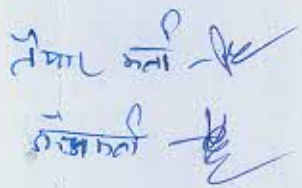 तैयार कर्ता -
चेककर्ता -